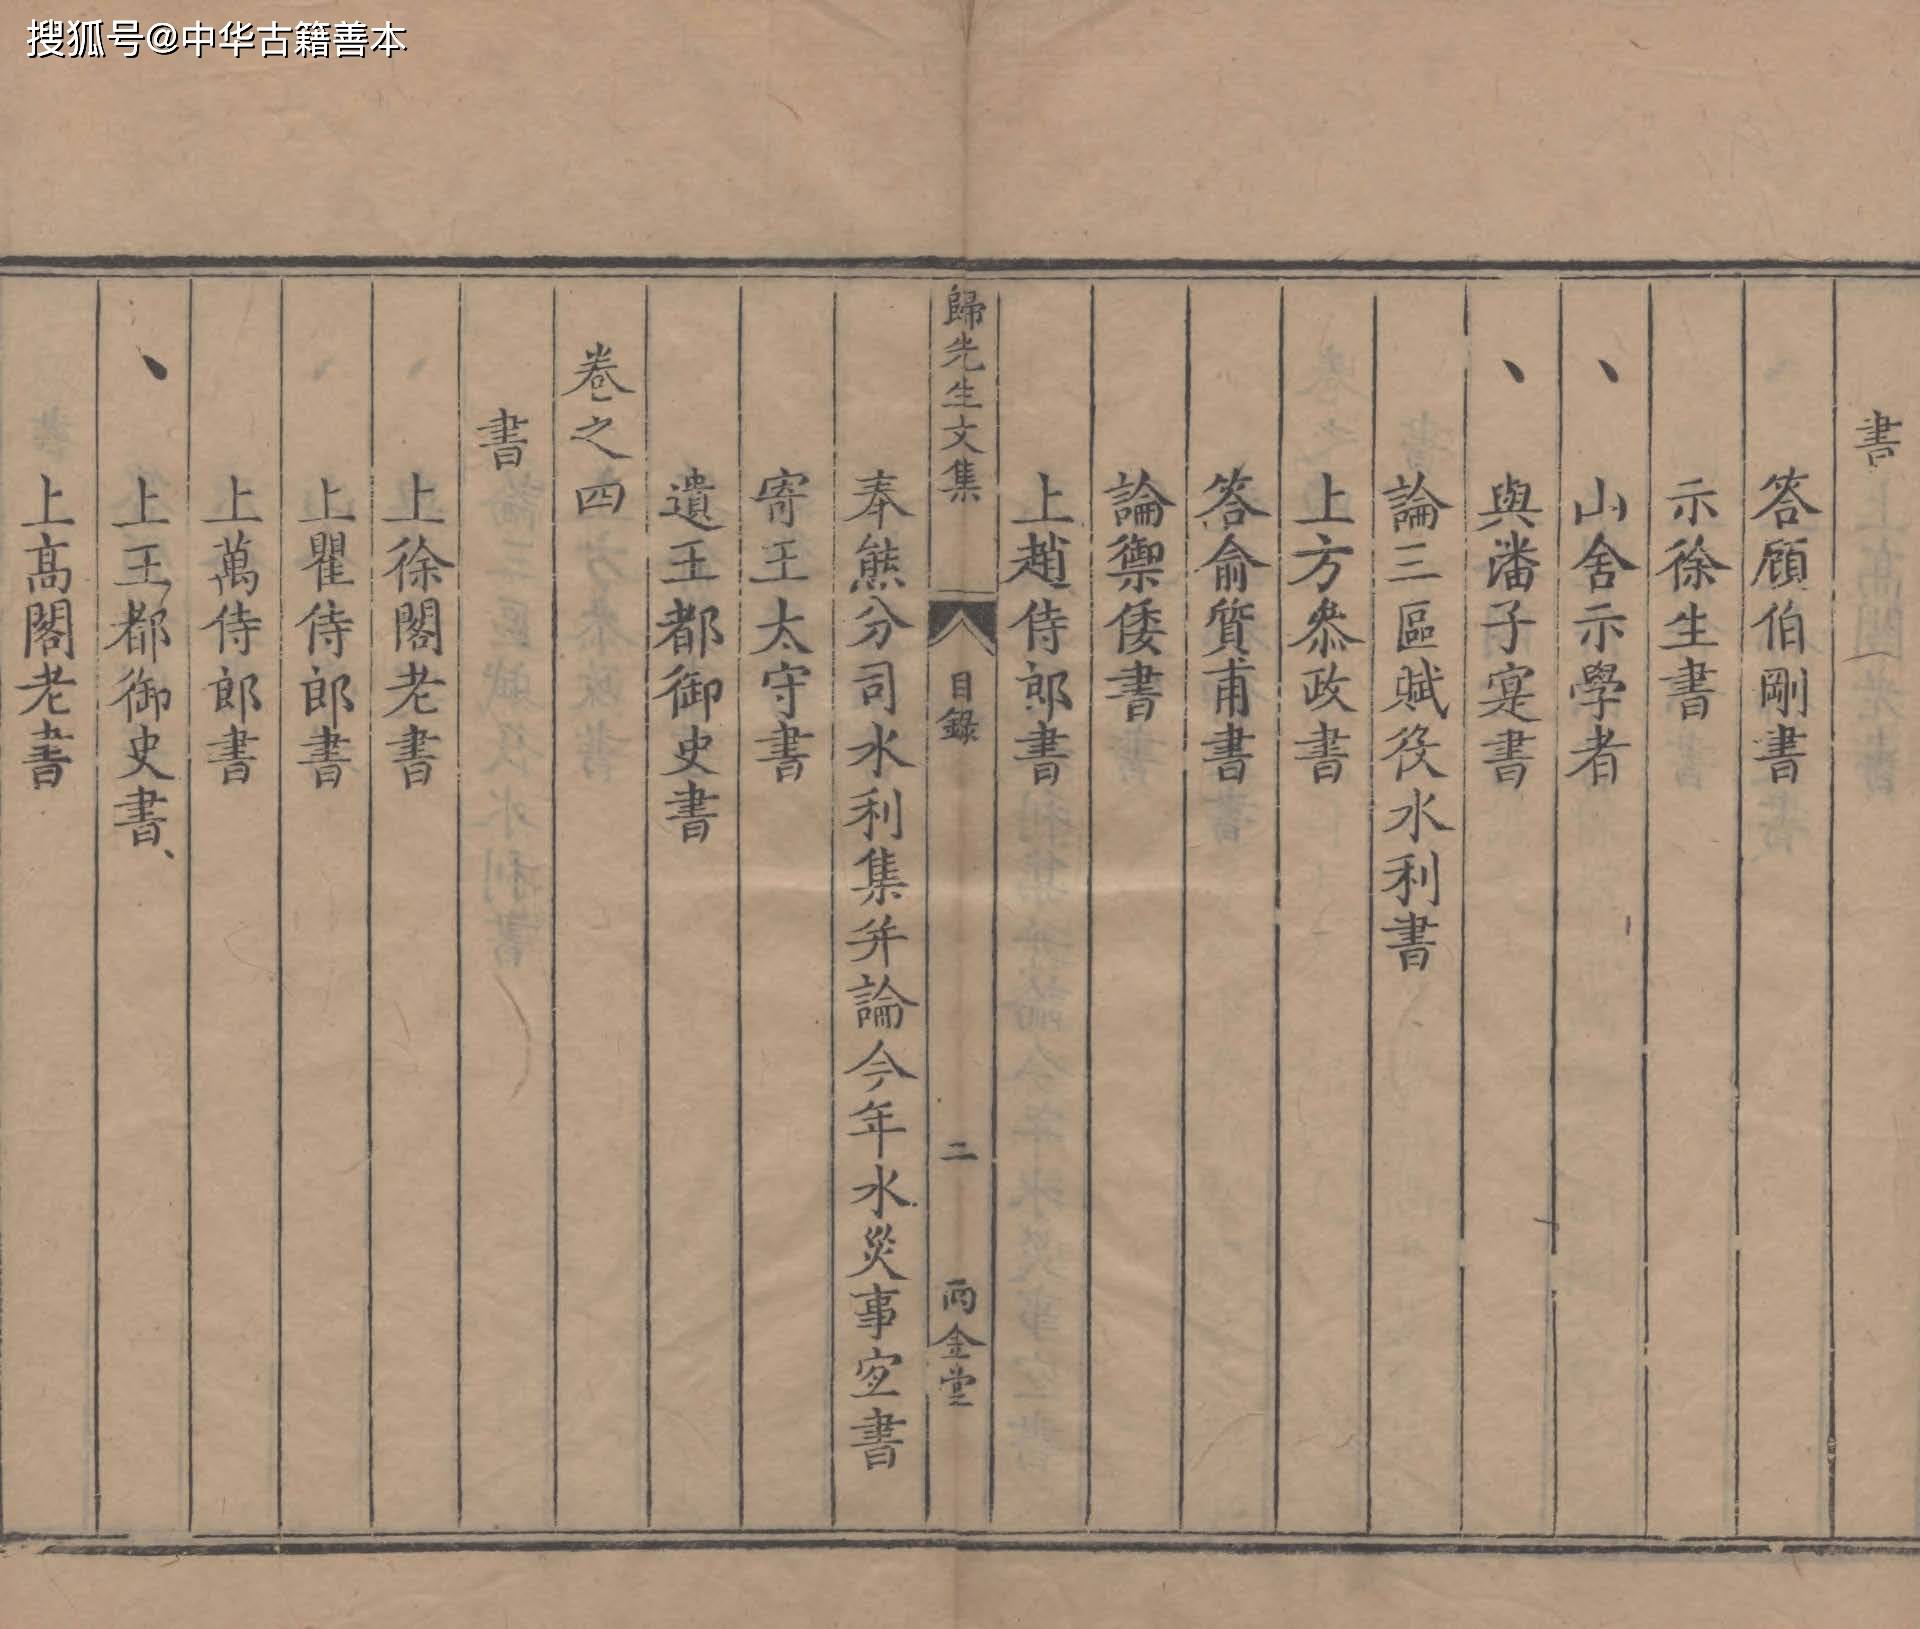 搜狐号@中华古籍善本
書
答顧伯剛書
示徐生書
山舍示學者
與潘子寔書
論三區賦役水利書
上方叅政書
答俞質甫書
論禦倭書
上趙侍郎書
歸先生文集
目錄
二
兩金堂
奉熊分司水利集并論今年水災事宐書
寄王太守書
遺王都御史書
卷之四
書
上徐閣老書
上瞿侍郎書
上萬侍郎書
上王都御史書
上高閣老書